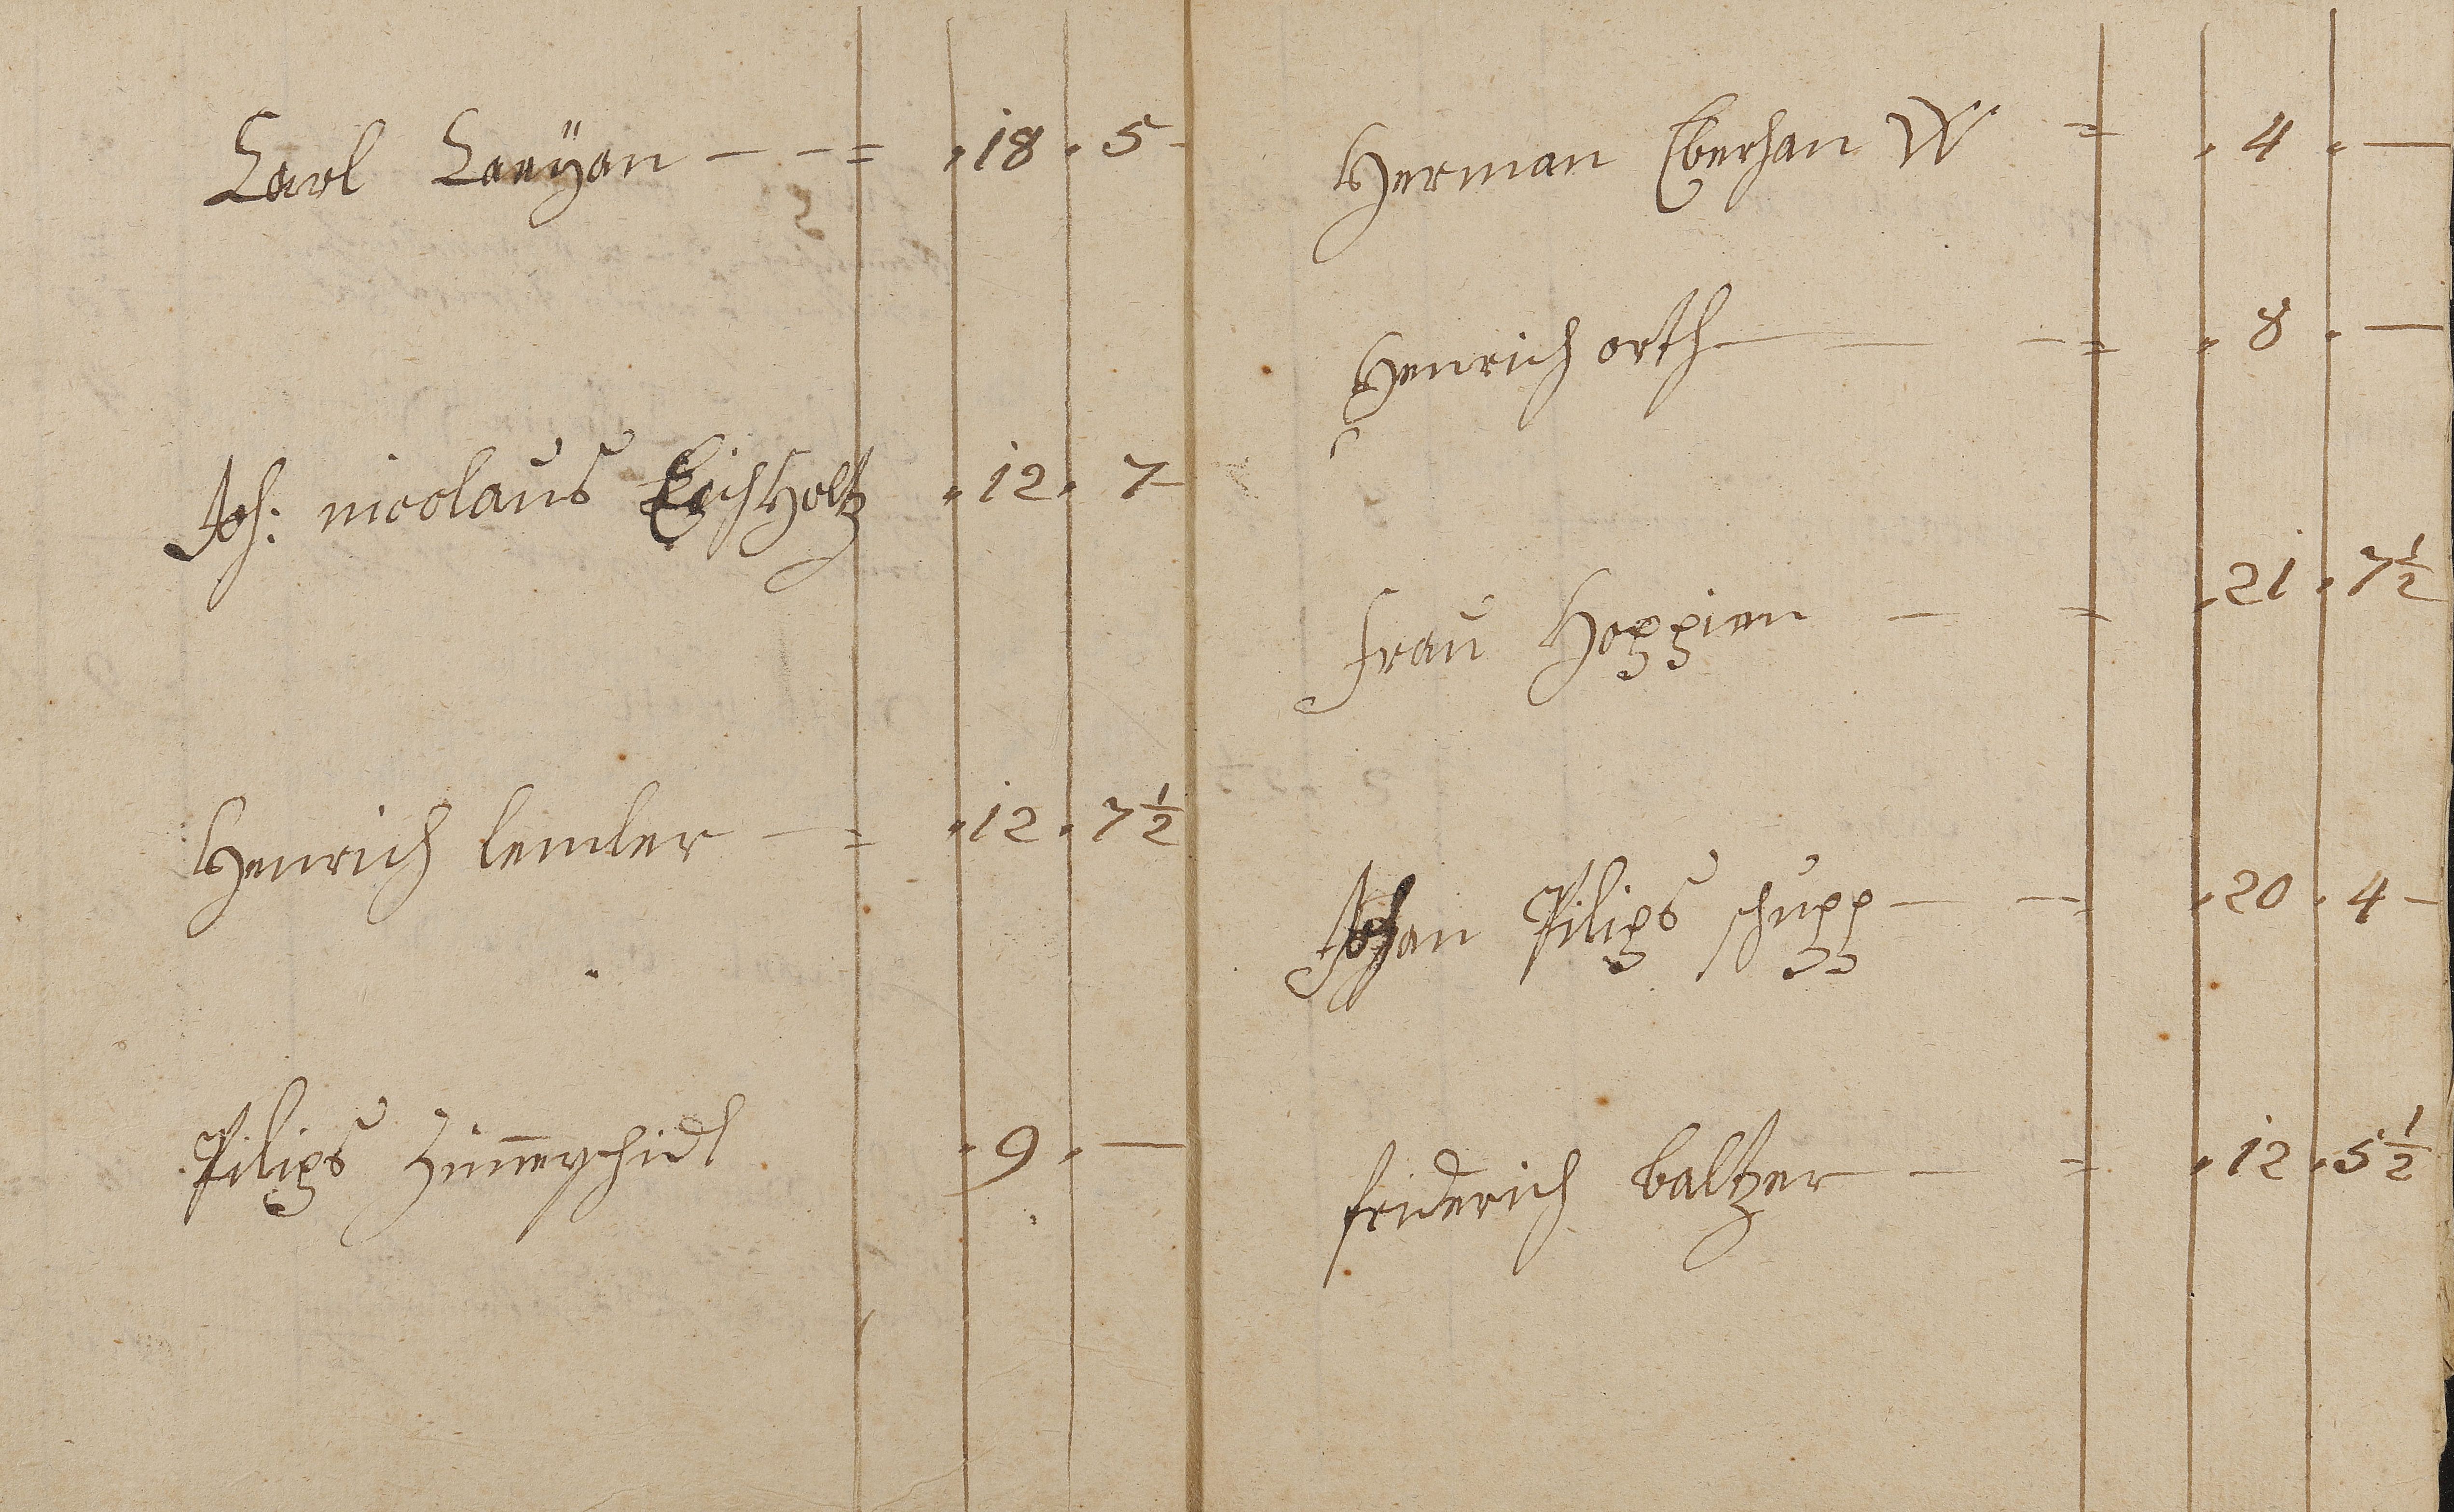 Carl — — = 18 . 5 -
Joh: nicolaus Eichholtz . 12 . 7
Henrich lemler — = . 12 . 7 1/2
Pilips . 9 . —
Herman Eberhan W = . 4 . —
Henrich orth — — = . 8 . —
Frau Hoppien — = . 21 . 7 1/2
Johan Pilips schupp — — . 20 . 4 -
friderich baltzer — = . 12 . 5 1/2